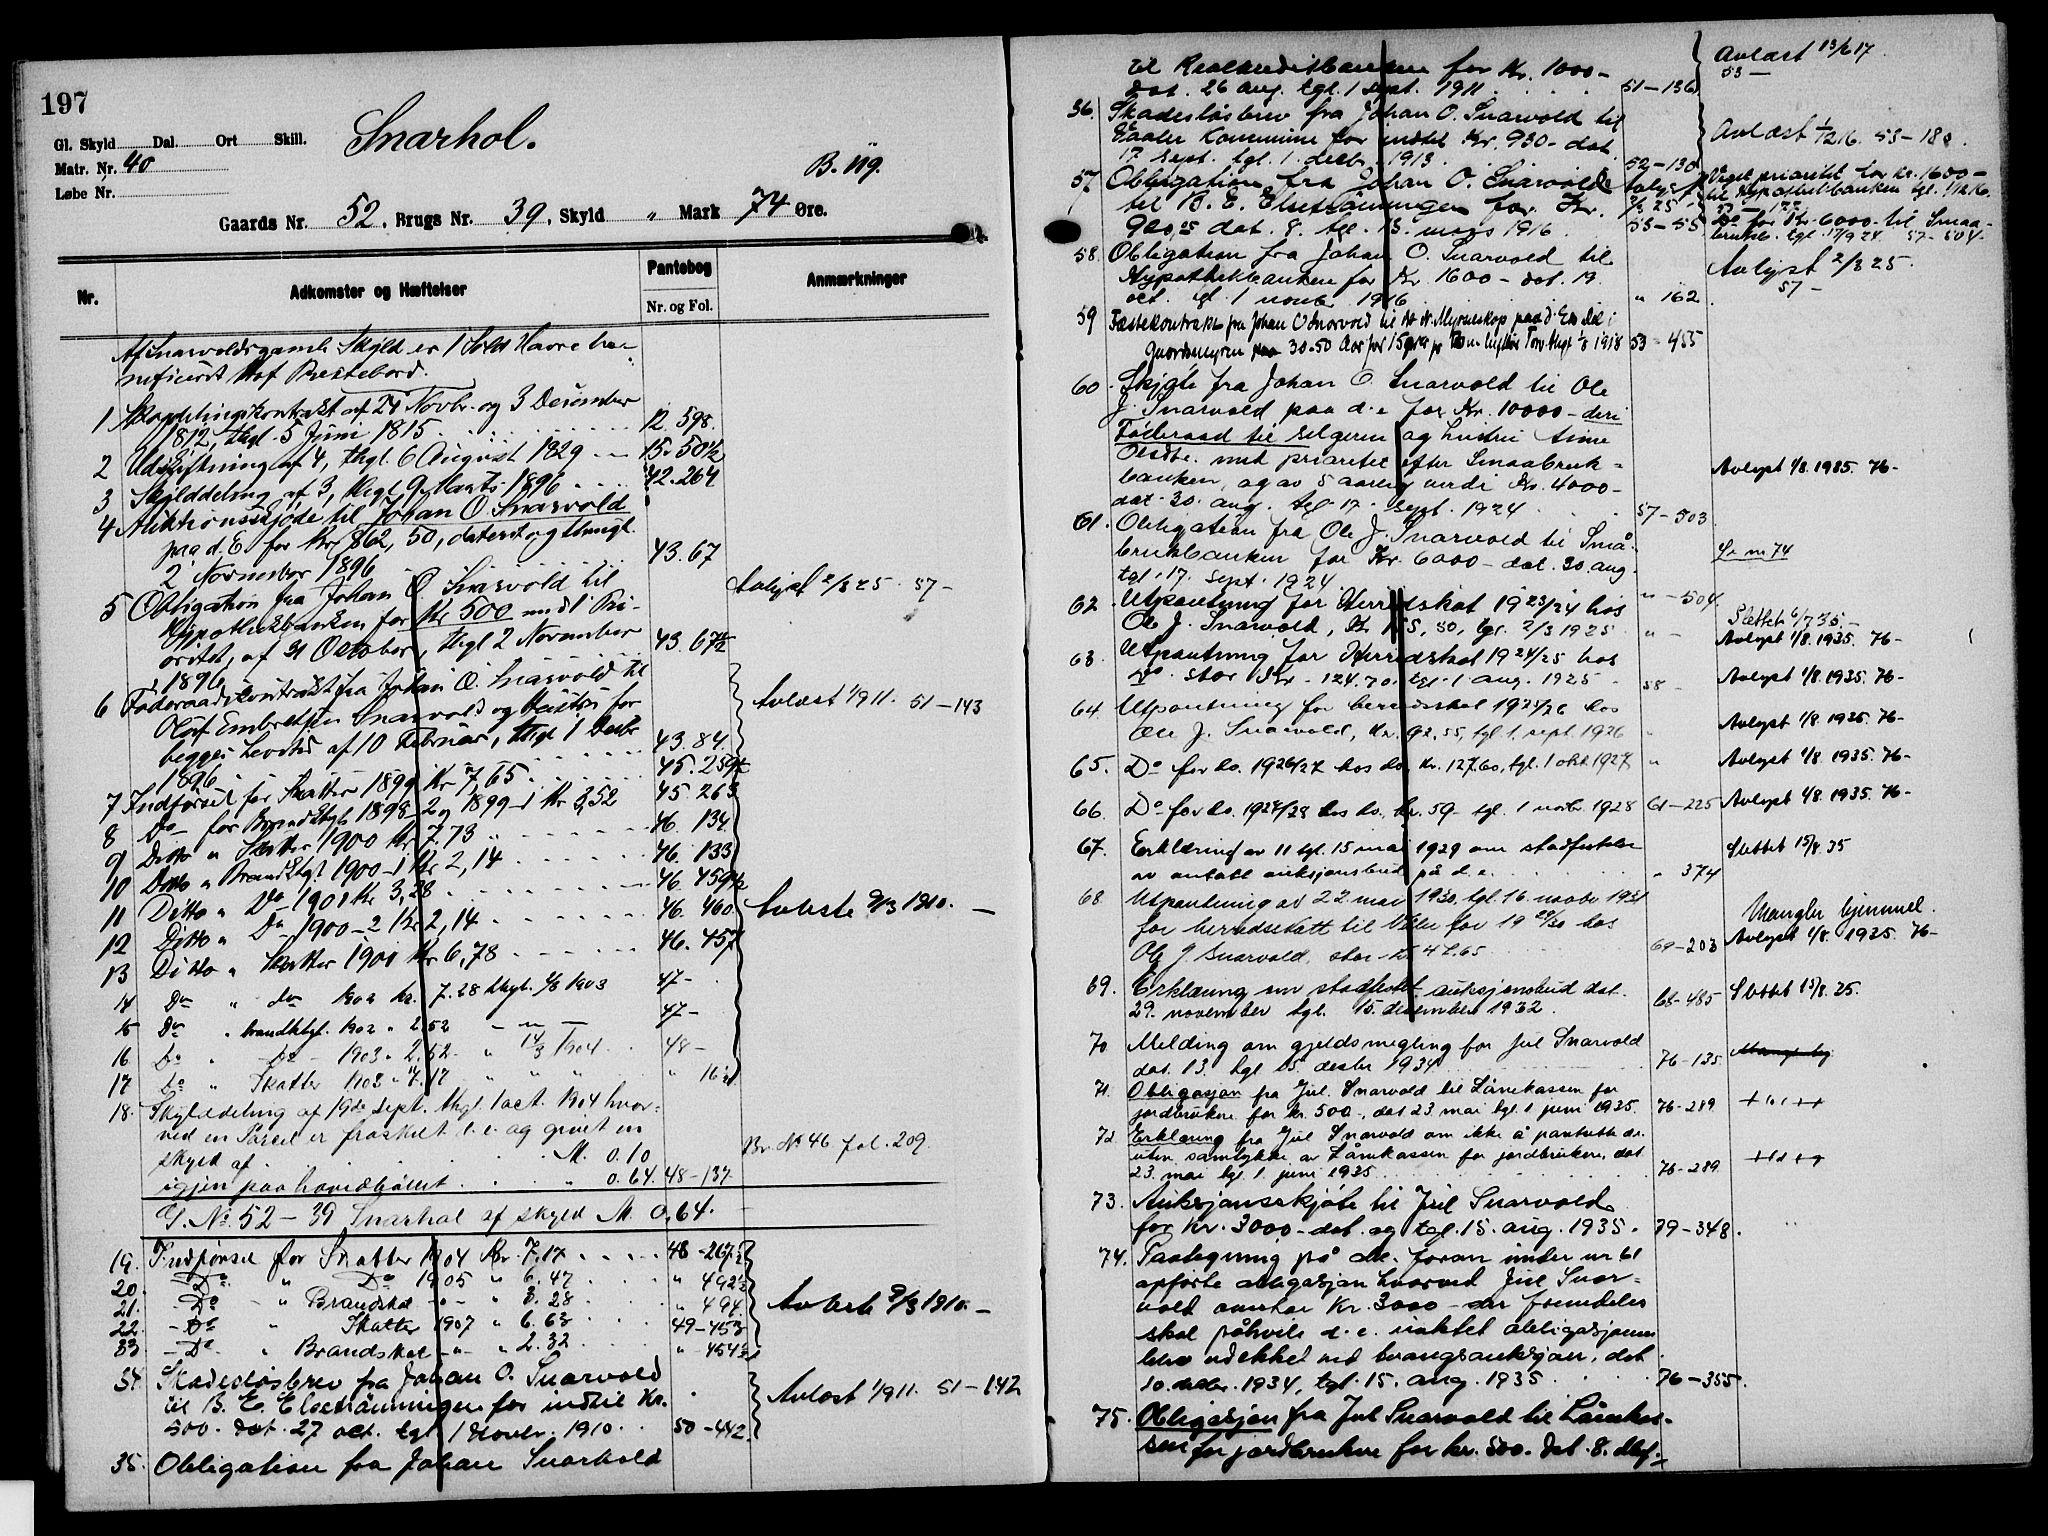 197
Snarhol.
Gl. Skyld Dal. Ort Skill.
Matr. Nr. 40
Løbe Nr.
B. 119.
Gaards Nr. 52, Brugs Nr. 39, Skyld " Mark 74 Øre.
Nr. Adkomster og Hæftelser Pantebog Nr. og Fol. Anmærkninger
Af Snarvolds gamle Skyld er 1 Sold Havre be-
neficeret Prestebord.
1 Skogdelingskontrakt af 24 Novbr. og 3 December
1812, thgl. 5 Juni 1815 12. 598.
2 Udskiftning af 4, thgl. 6 August 1829 15. 501½
3 Skylddeling af 3, thgl. 9 Marts 1896 42. 264
4 Auktionsskjøde til Johan O. Snarvold
paa d. E. for Kr 862,50, dateret og thingl.
2 November 1896 43. 67
5 Obligation fra Johan O. Snarvold til Avlyst 2/3 25. 57-
Hypothekbanken for Kr 500 med 1 Pri-
oritet, af 21 October, thgl 2 November 43. 67½
1896
6 Føderaadskontrakt fra Johan O. Snarvold til
Oluf Embretsen Snarvold og Hustru for Avlæst 1/9 11. 51-143
begges Levetid af 10 Februar, thgl 1 Decbr
1896 43. 84
7 Indførsel for Skatter 1899 Kr 7,65 45. 259½
8 Do for Brandktgt. 1898-2 og 1899-1 Kr 3,52 45. 263
9 Ditto " Skatter 1900 Kr 7.73 46. 134
10 Ditto " Brandktgt. 1900-1 Kr 2,14 46. 133
11 Ditto " Do 1901 Kr 3,28 46. 459½
12 Ditto " Do 1900-2 Kr 2,14 46. 460. Avleste 9/3 1910. -
13 Ditto " Skatter 1901 Kr 6,78 46. 457
14 Do " do 1902 kr. 7.28 thgl. 1903 47-
15 Do " brandktgt. 1902 " 2.52 47-
16 Do " Do - 1903 " 2.52 " 14/3 1904 48-
17 Do " Skatter 1903 " 7.17 " "
18. Skylddeling af 19de sept. thgl. 1 oct. 1904 hvor-
ved en Parcel er fraskilt d. e. og givet en
skyld af M. 0.10 Br. No 46 fol. 209.
igjen paa hovedbøllet " 0.64. 48-137.
G. No. 52 - 39 Snarhol af skyld M. 0,64.
19. Indførsel for Skatter 1904 Kr. 7.17 48-267½
20. Do " Do 1905 " 6.47 " 492½
21. Do " Brandskat -"- " 3.28 " 494. Avlæst 9/3 1910. -
22. Do " Skatter 1907 " 6.63 49-453
33 Do " Brandskat -"- " 2.32 " 454½
34. Skadesløsbrev fra Johan O. Snarvold
til B. E. Elsetrønningen for indtil Kr. Avlæst 1/9 11. 51-142
500. dat. 27 oct. tgl. 1 Novbr. 1910 50-442.
35. Obligation fra Johan Snarhold
til Realkreditbanken for Kr. 1000- Avlæst 13/6 17.
dat. 26 aug. tgl. 1 sept. 1911 51-136 53-
36. Skadesløsbrev fra Johan O. Snarvold til
Vaaler Kommune for indtil Kr. 930- dat. Avlæst 1/12 16. 53-180.
17 sept. tgl. 1. decbr. 1913 52-130
57 Obligation fra Johan O. Snarvold Avlyst Veget prioritet for kr. 1600-
til B. E. Elsetrønningen for Kr. 2/3 25. til Hypothekbanken tgl. 1/12 16.
900,05 dat. 8. tgl. 15. mars 1916 53-55 Do for Kr. 6000 til Smaa-
brukb. tgl. 17/9 24. 57-504.
58. Obligation fra Johan O. Snarvold til
Hypothekbanken for Kr. 1600- dat. 19. Avlyst 2/3 25.
oct. tgl. 1 novbr. 1916 " 162 57-
59 Fæstekontrakt fra Johan O Snarvold til Myrselskap paa d. E. Del i
30-50 Aar for 15 øre pr. Torv thgl 1/8 1918 53-455
60. Skjøte fra Johan O. Snarvold til Ole
J. Snarvold paa d. e. for Kr. 10000- deri
Føderaad til selgeren og hustru Sime
Olsdtr. med prioritet efter Smaabruk- Avlyst 1/8. 1935. 76-
banken, og av 5 aarlig verdi Kr. 4000-
dat. 30. aug. tgl. 17. sept. 1924 57-503
61. Obligation fra Ole J. Snarvold til Små-
brukbanken for Kr. 6000- dat. 30. aug. Se nr 74
tgl. 17. sept. 1924 " -504.
62. Utpantning for Herredskat 1923/24 hos
Ole J. Snarvold, Kr. 55,80, tgl. 2/3 1925 " - Slettet 6/7 35.-
Avlyst 1/8. 1935. 76-
63. Utpantning for Herredskat 1924/25 hos
do. stor Kr. 124.70. tgl. 1 aug. 1925 58- Avlyst 1/8. 1935. 76-
64. Utpantning for herredskat 1925/26 hos
Ole J. Snarvold, Kr. 92.55, tgl. 1. sept. 1926 " Avlyst 1/8. 1935. 76-
65. Do for do. 1926/27 hos do. Kr. 127.60, tgl. 1 okt 1927 " Avlyst 1/8. 1935. 76-
66. Do for do. 1927/28 hos do. Kr. 59- tgl. 1 novbr. 1928 61-225 Avlyst 1/8. 1935. 76-
67. Erklæring av 11 tgl. 15 mai 1929 om stadfestelse Slettet 15/8. 35
av antatt auksjonsbud på d. e. " 374
68 Utpantning av 22. mai 1930, tgl. 16. novbr 1931
for herredskatt til Våler for 1929/30 hos Mangler hjemmel.
Ole J Snarvold, stor kr 47.65 69-203 Avlyst 1/8. 1935. 76-
69. Erklæring om stadfestet auksjonsbud dat.
29. november tgl. 15. desember 1932. 68-485 Slettet 15/8. 35.
70 Melding om gjeldsmegling for Jul Snarvold
dat. 13. tgl 15. desbr 1934 76-135
71. Obligasjon fra Jul. Snarvold til Lånekassen for
jordbrukere for kr. 500-, dat 23. mai tgl. 1 juni 1935. 76-289
72 Erklæring fra Jul Snarvold om ikke å pantsette d.e.
uten samtykke av Lånekassen for jordbrukere, dat
23. mai tgl. 1. juni 1935 76-289
73. Auksjonsskjøte til Jul Snarvold
for Kr. 3000- dat. og tgl. 15. aug. 1935. 79-348.
74. Paategning på den foran under nr 61
opførte obligasjon hvorved Jul Snar-
vold overtar Kr. 3000- der fremdeles
skal påhvile d. e. uaktet obligasjonen
blev udekket ved tvangsauksjon, dat.
10. desbr. 1934, tgl. 15. aug. 1935 76-355.
75. Obligasjon fra Jul Snarvold til Lånekas-
sen for jordbrukere for kr. 500- dat. 8. tgl.